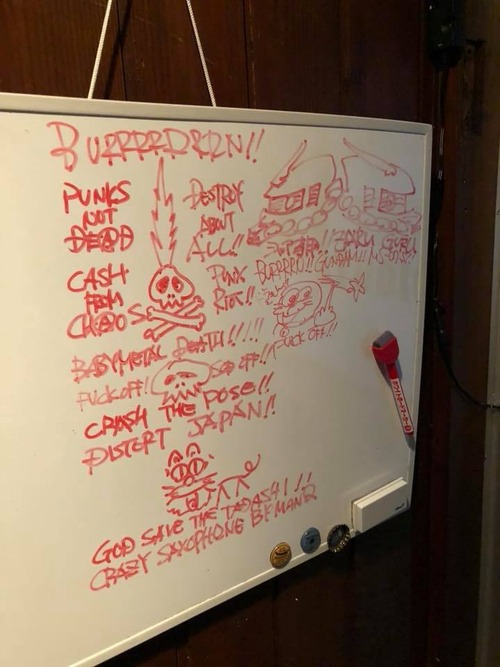 BURRRRRRRN!!
PUNKS
NOT
DEAD
DESTROY
ABUT
ALL!!
CASH
FROM
CHAO
PUNX
RIOT!!
ZAKU GUFU
BURRRRN!! GUNDAM!! MS-
FUCK OFF!!
BABYMETAL DEATH!!!!!
FUCK OFF!
OFF!!
CRASH THE POSE!!
DISTORT JAPAN!!
GOD SAVE THE TADASHI!!
CRAZY SAXOPHONE BY MAN